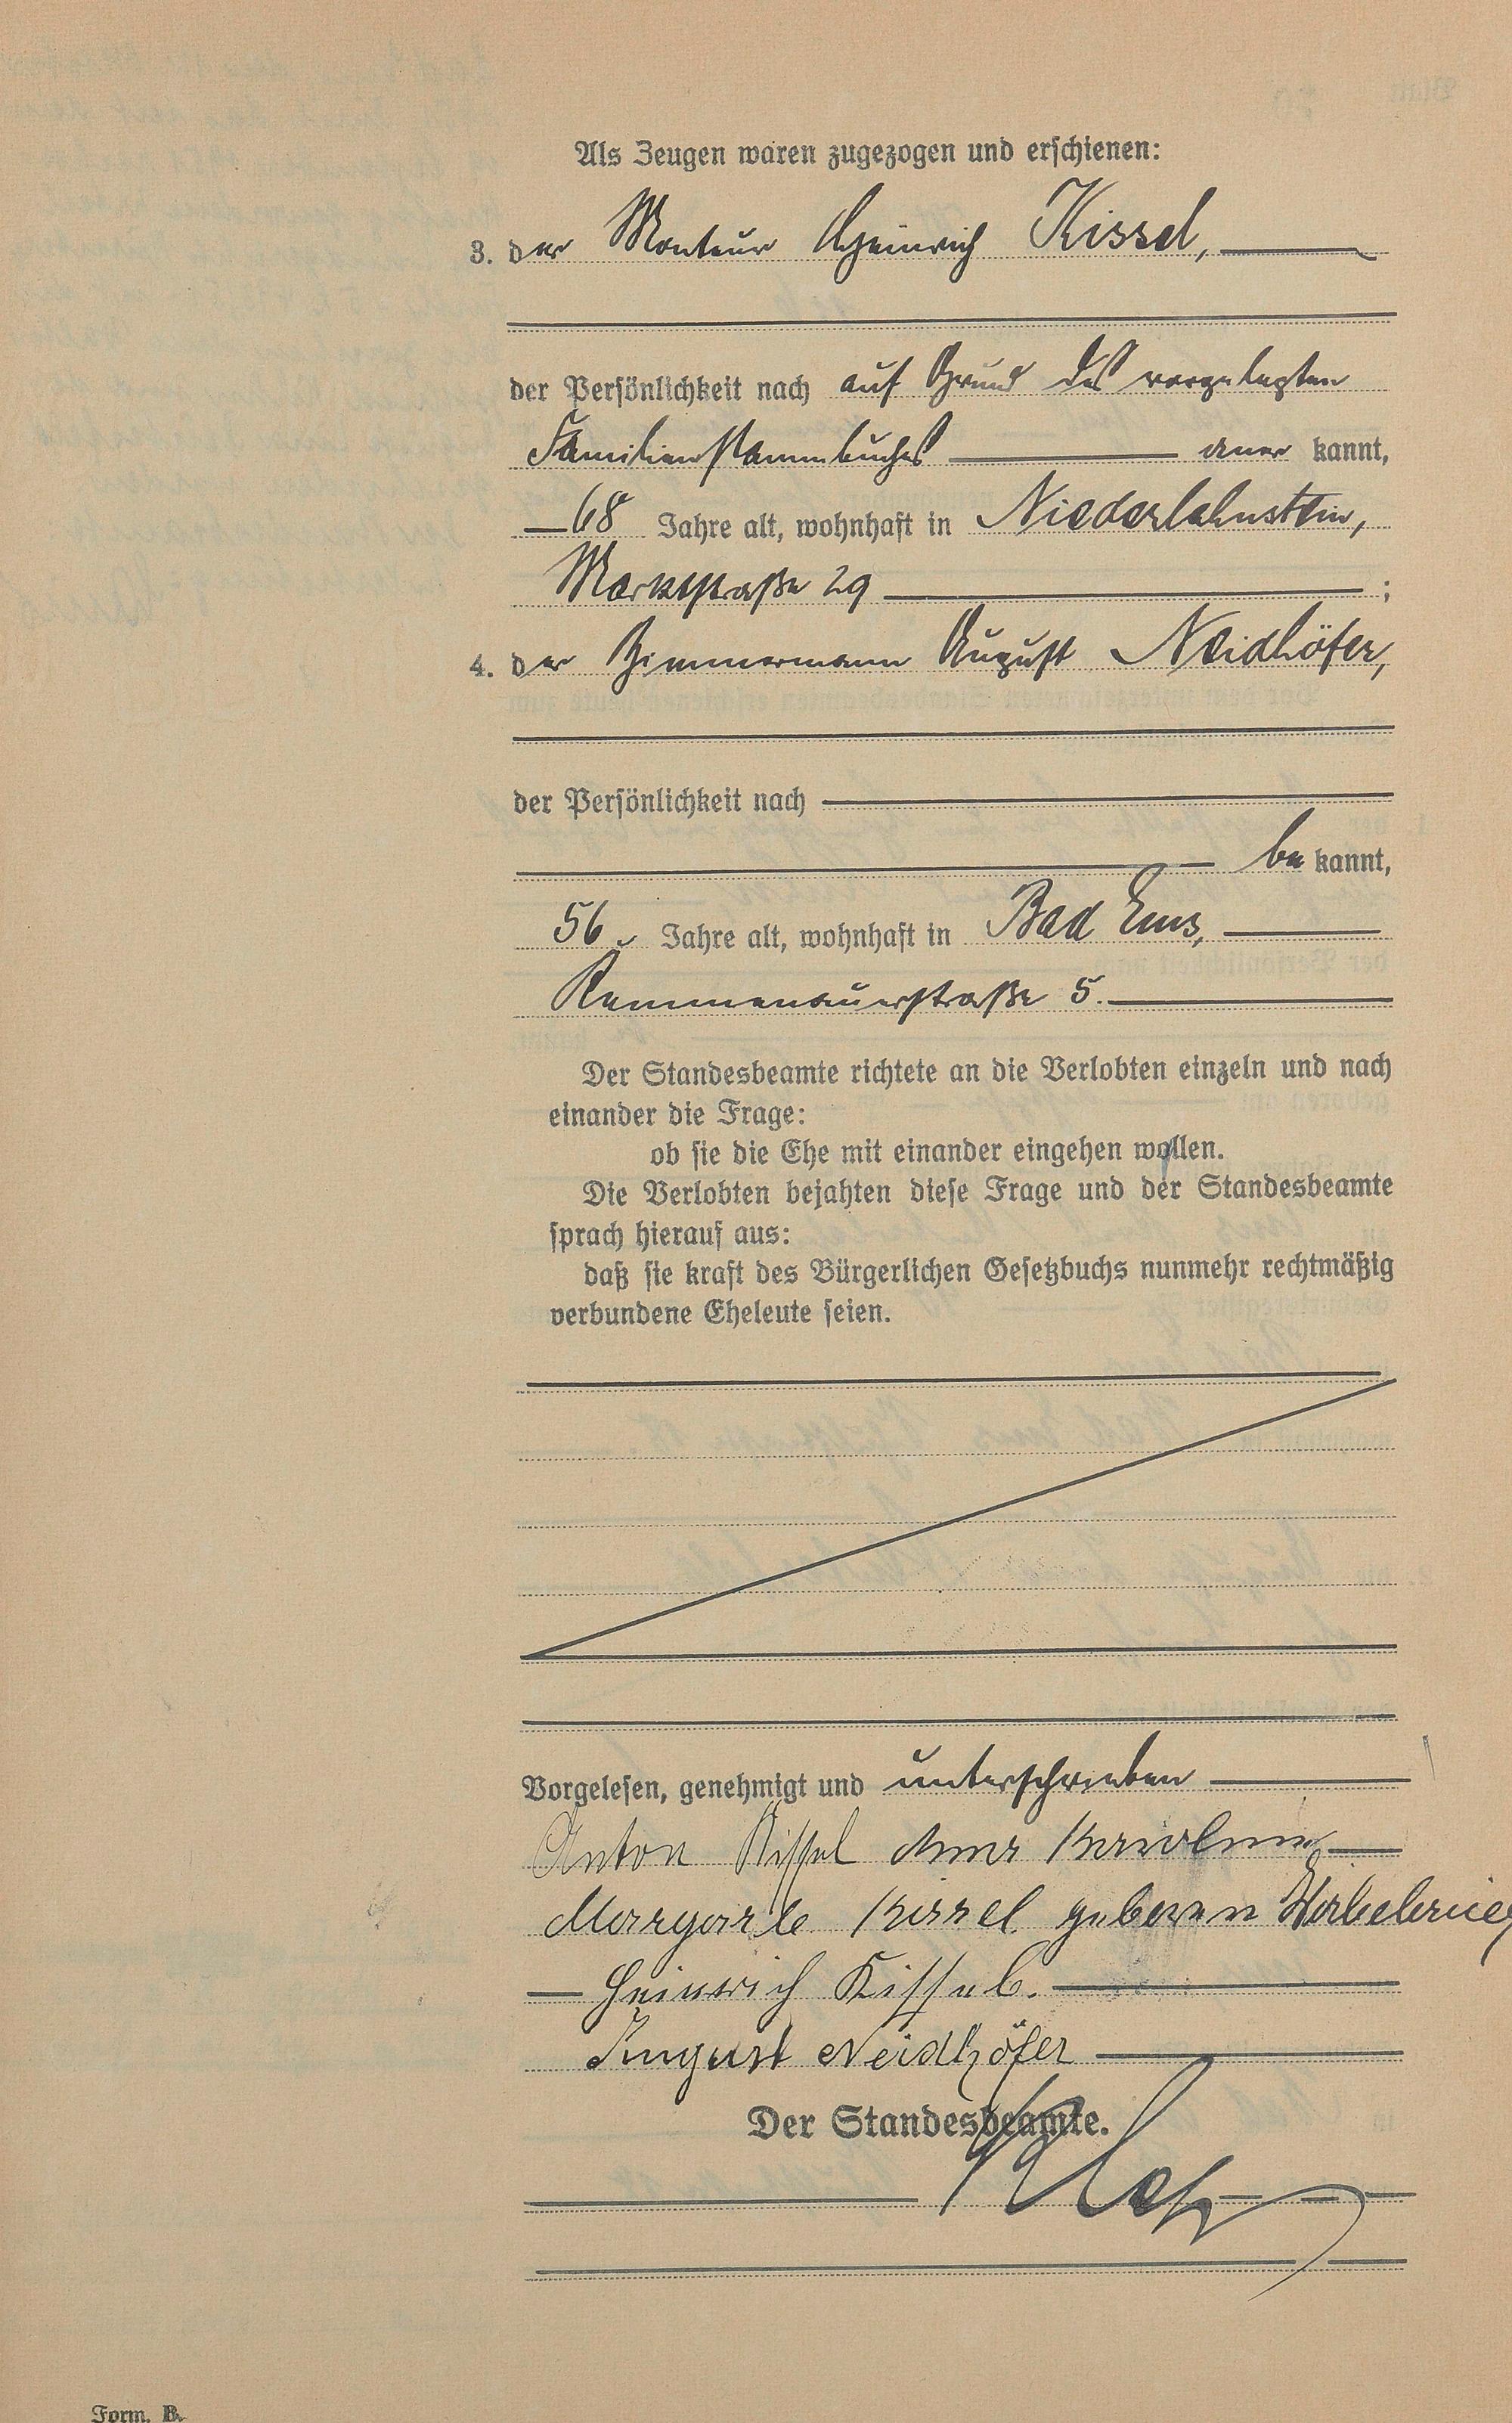 Als Zeugen waren zugezogen und erschienen:
3. der Monteur Heinrich Kissel,
der Persönlichkeit nach auf Grund des vorgelegten
Familienstammbuches aner kannt,
68 Jahre alt, wohnhaft in Niederlahnstein,
Marktstraße 29 ;
4. der Zimmermann August Neidhöfer,
der Persönlichkeit nach
be kannt,
56 Jahre alt, wohnhaft in Bad Ems,
Kemmenauerstraße 5.
Der Standesbeamte richtete an die Verlobten einzeln und nach
einander die Frage:
ob sie die Ehe mit einander eingehen wollen.
Die Verlobten bejahten diese Frage und der Standesbeamte
sprach hierauf aus:
daß sie kraft des Bürgerlichen Gesetzbuchs nunmehr rechtmäßig
verbundene Eheleute seien.
Vorgelesen, genehmigt und unterschrieben
Anton Kissel Anna Karoline
Margarete Kissel geboren
Heinrich Kissel.
August Neidhöfer
Der Standesbeamte.
Form. B.